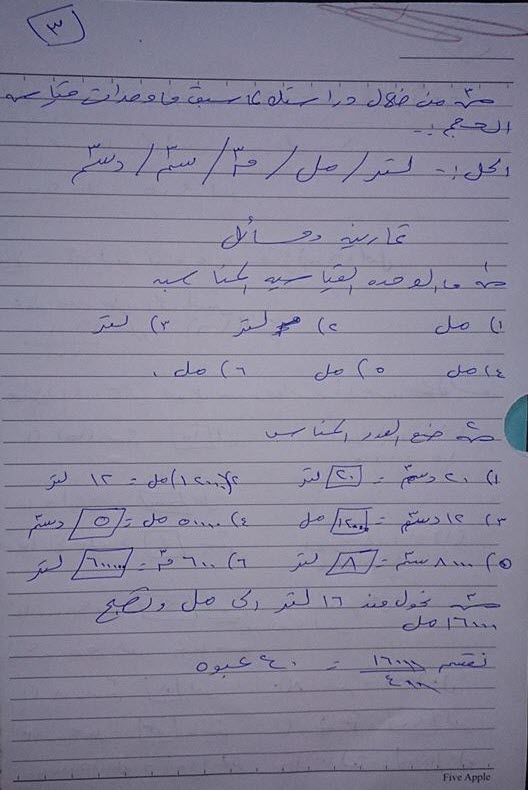 ٣
س٣ من خلال دراستك ما سبق ما وحدات قياس
الحجم :-
الحل :- لتر / مل / م٣ / سم٣ / دسم٣
تمارين ومسائل
س١ ما الوحده القياسيه المناسبه
١) مل ٢) لتر ٣) لتر
٤) مل ٥) مل ٦) مل .
س٢ ضع العدد المناسب
١) ٢٠ دسم٣ = ٢٠ لتر ٢) (١٢٠٠٠) مل = ١٢ لتر
٣) ١٢ دسم٣ = ١٢٠٠٠ مل ٤) ٥٠٠٠ مل = ٥ دسم٣
٥) ٨٠٠٠ سم٣ = ٨ لتر ٦) ٦٠٠ م٣ = ٦٠٠٠٠٠ لتر
س٣ نحول من ١٦ لتر الى مل وتصبح
١٦٠٠٠ مل
نقسم ١٦٠٠٠ / ٤٠٠ = ٤٠ عبوه
Five Apple